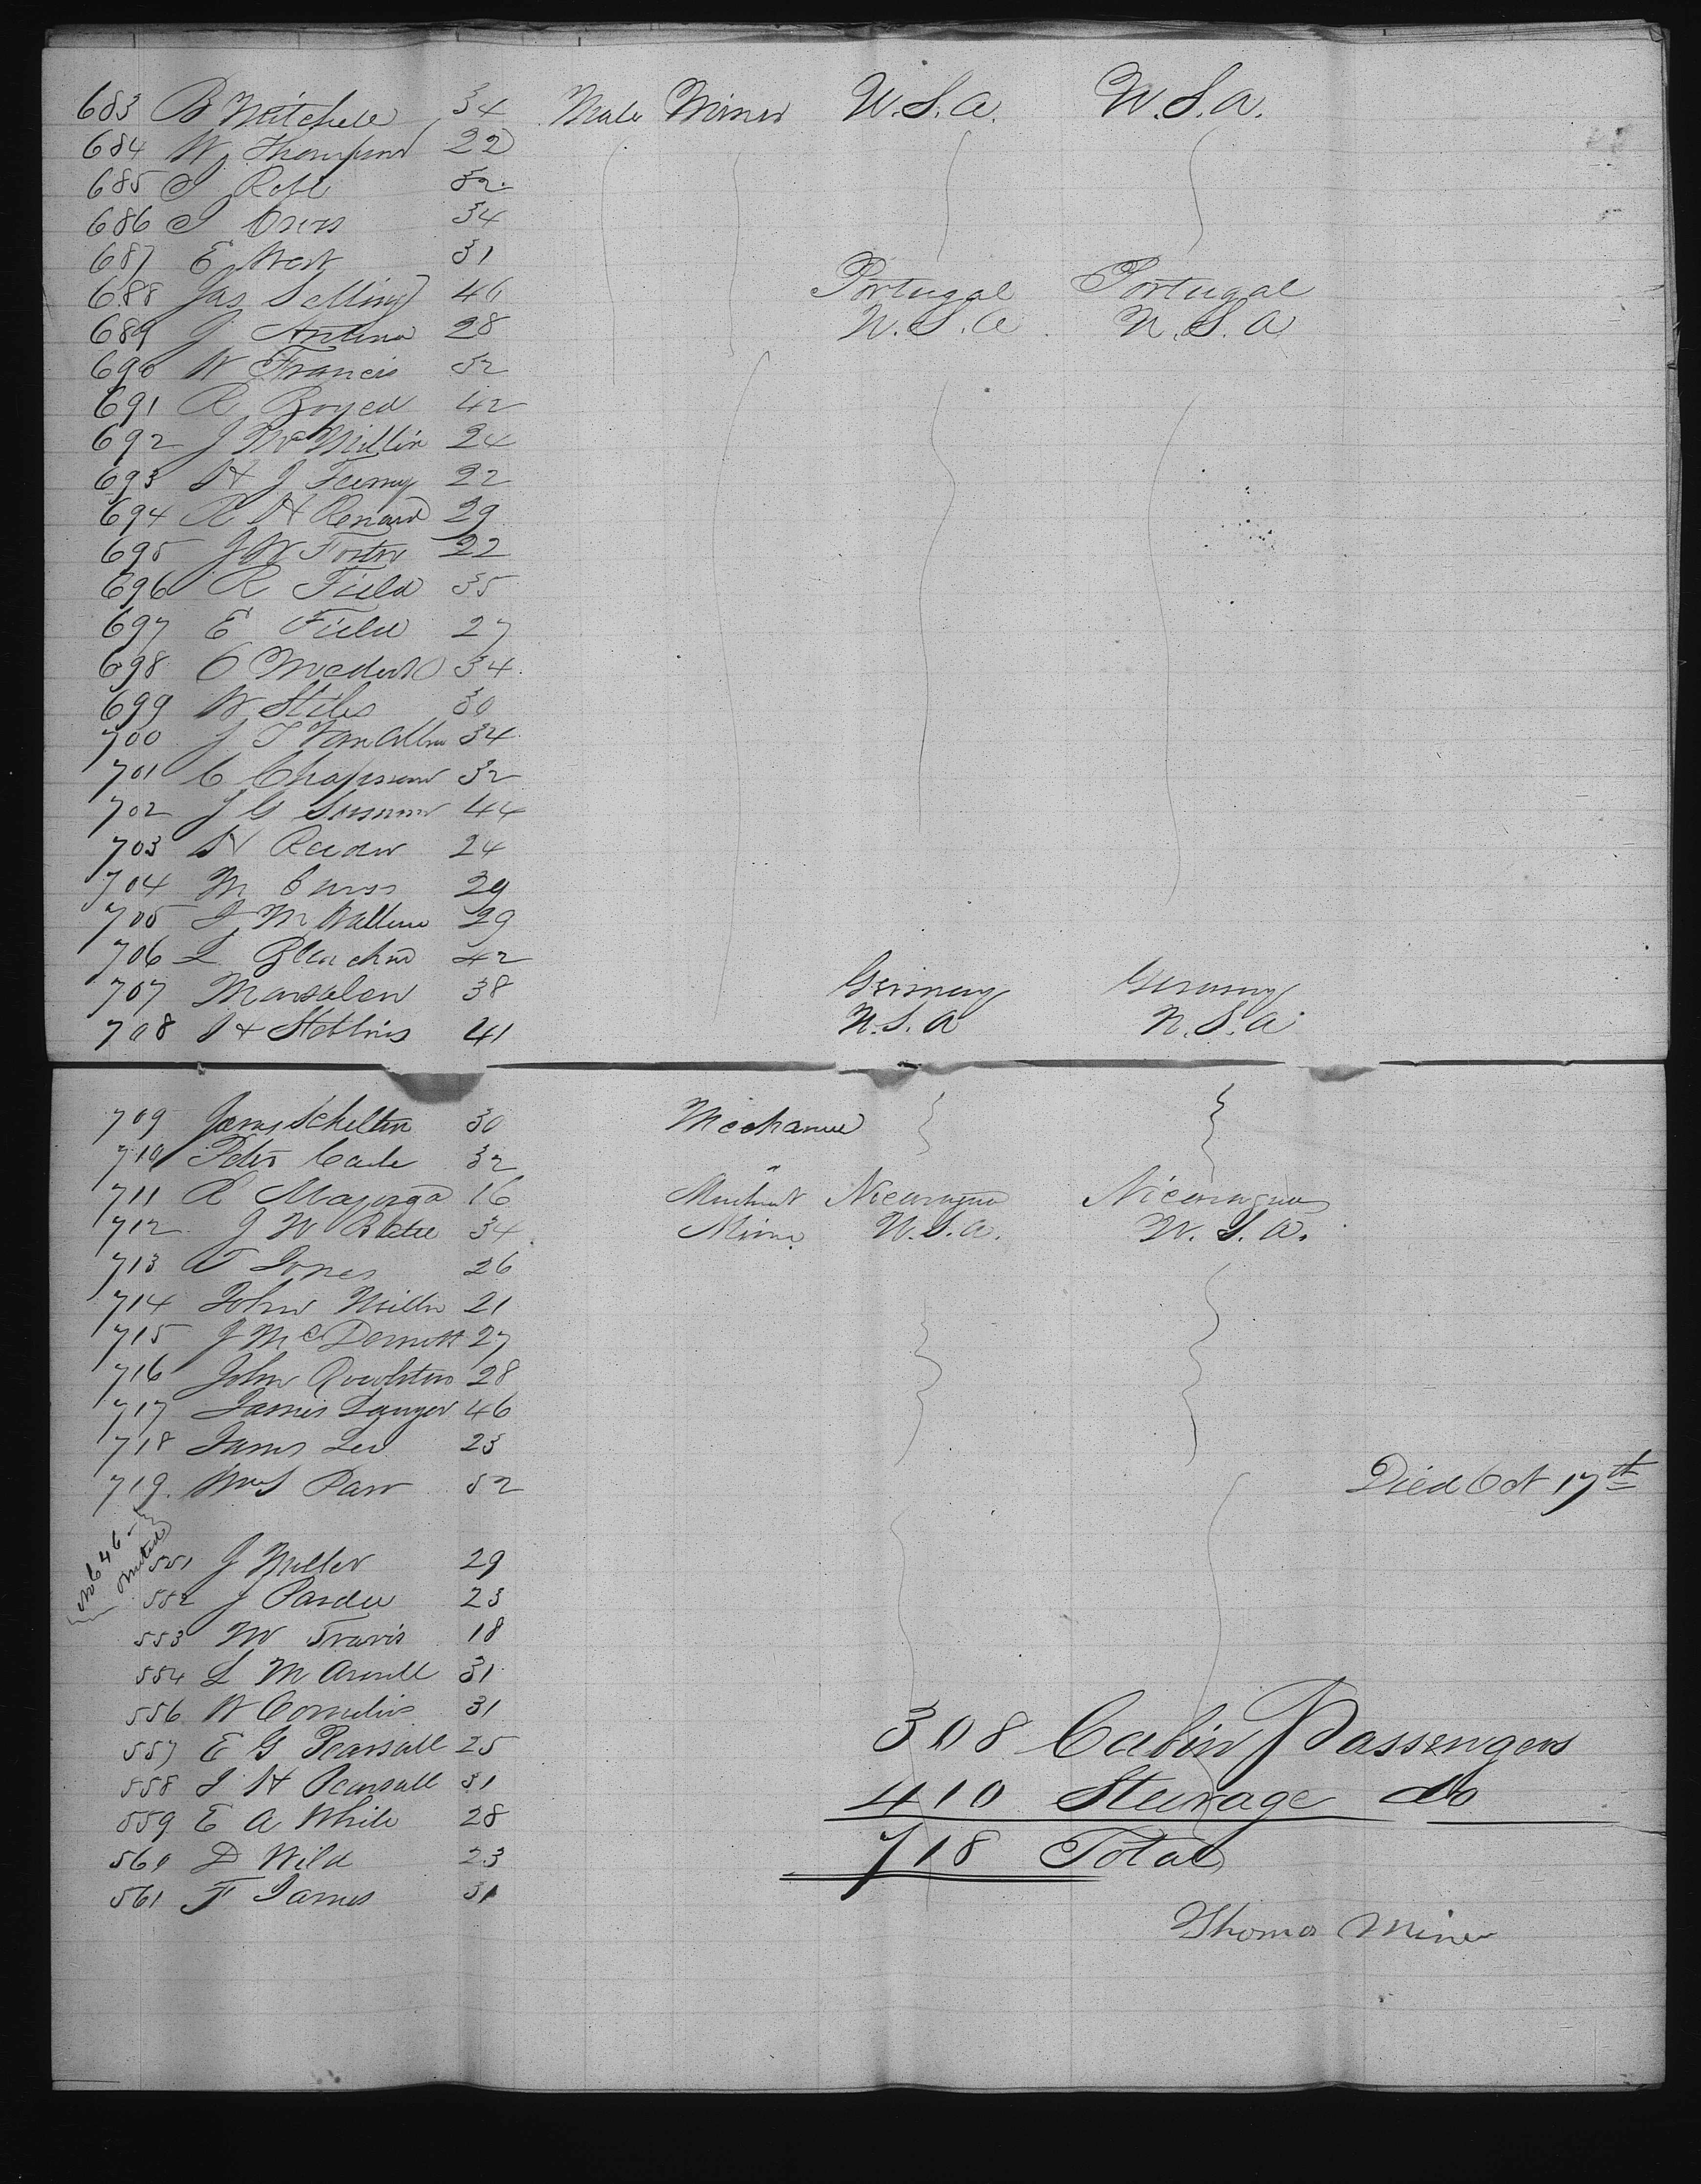 683 B Mitchell 34 Male Miner U.S.A. U.S.A.
684 W Thompson 22
685 J Rofe 32
686 J 34
687 E West 31
688 Jas Selling 46 Portugal Portugal
689 J Antino 28 U.S.A U.S.A
690 W Francis 52
691 R Boyed 42
692 J McMillin 24
693 H J 22
694 R H Renard 29
695 J W Foster 22
696 R Field 35
697 E Field 27
698 34
699 W Stiles 30
700 J T VanAllen 34
701 C 32
702 J G 44
703 H Reeder 24
704 M 29
705 J M Wallace 29
706 L 42
707 38 Germany Germany
708 H Stebbins 41 U.S.A U.S.A
709 James Schelten 30 Mechanic
710 Peter 32 "
711 R Mayorga 16 Nicaragua Nicaragua
712 J W 34 Miner U.S.A. U.S.A.
713 Jones 26
714 John Miller 21
715 J McDermott 27
716 John 28
717 James Langer 46
718 James Lee 23
719. Wm S Parr 52 Died Oct 17th
No 646 omitted
551 J Miller 29
552 J Pardee 23
553 W Travis 18
554 L M 31
556 W Cornelius 31
557 E G Pearsall 25
558 J H Pearsall 31
559 E A White 28
560 D Wild 23
561 F James 31
308 Cabin Passengers
410 Steerage do
718 Total
Thomas Miner